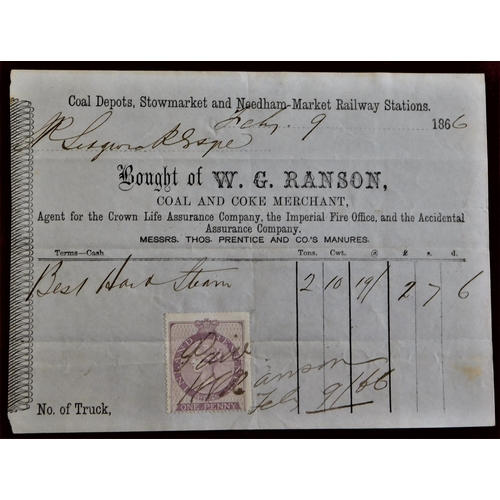 Coal Depots, Stowmarket and Needham-Market Railway Stations.
Feby. 9 1866
Esqre
Bought of W. G. RANSON,
COAL AND COKE MERCHANT,
Agent for the Crown Life Assurance Company, the Imperial Fire Office, and the Accidental
Assurance Company.
MESSRS. THOS. PRENTICE AND CO.'S MANURES.
Terms—Cash Tons. Cwt. @ £ s. d.
Best Hard Steam 2 10 19/ 2 7 6
INLAND REVENUE
Paid
W G Ranson
Feb 9/66
ONE PENNY
No. of Truck,